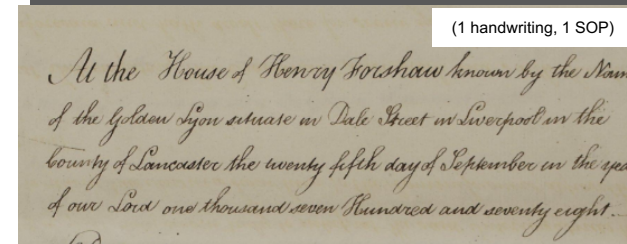 (1 handwriting, 1 SOP)
At the House of Henry Forshaw known by the Nam
of the Golden Lyon situate in Dale Street in Liverpool in the
County of Lancaster the twenty fifth day of September in the yea
of our Lord one thousand seven Hundred and seventy eight.